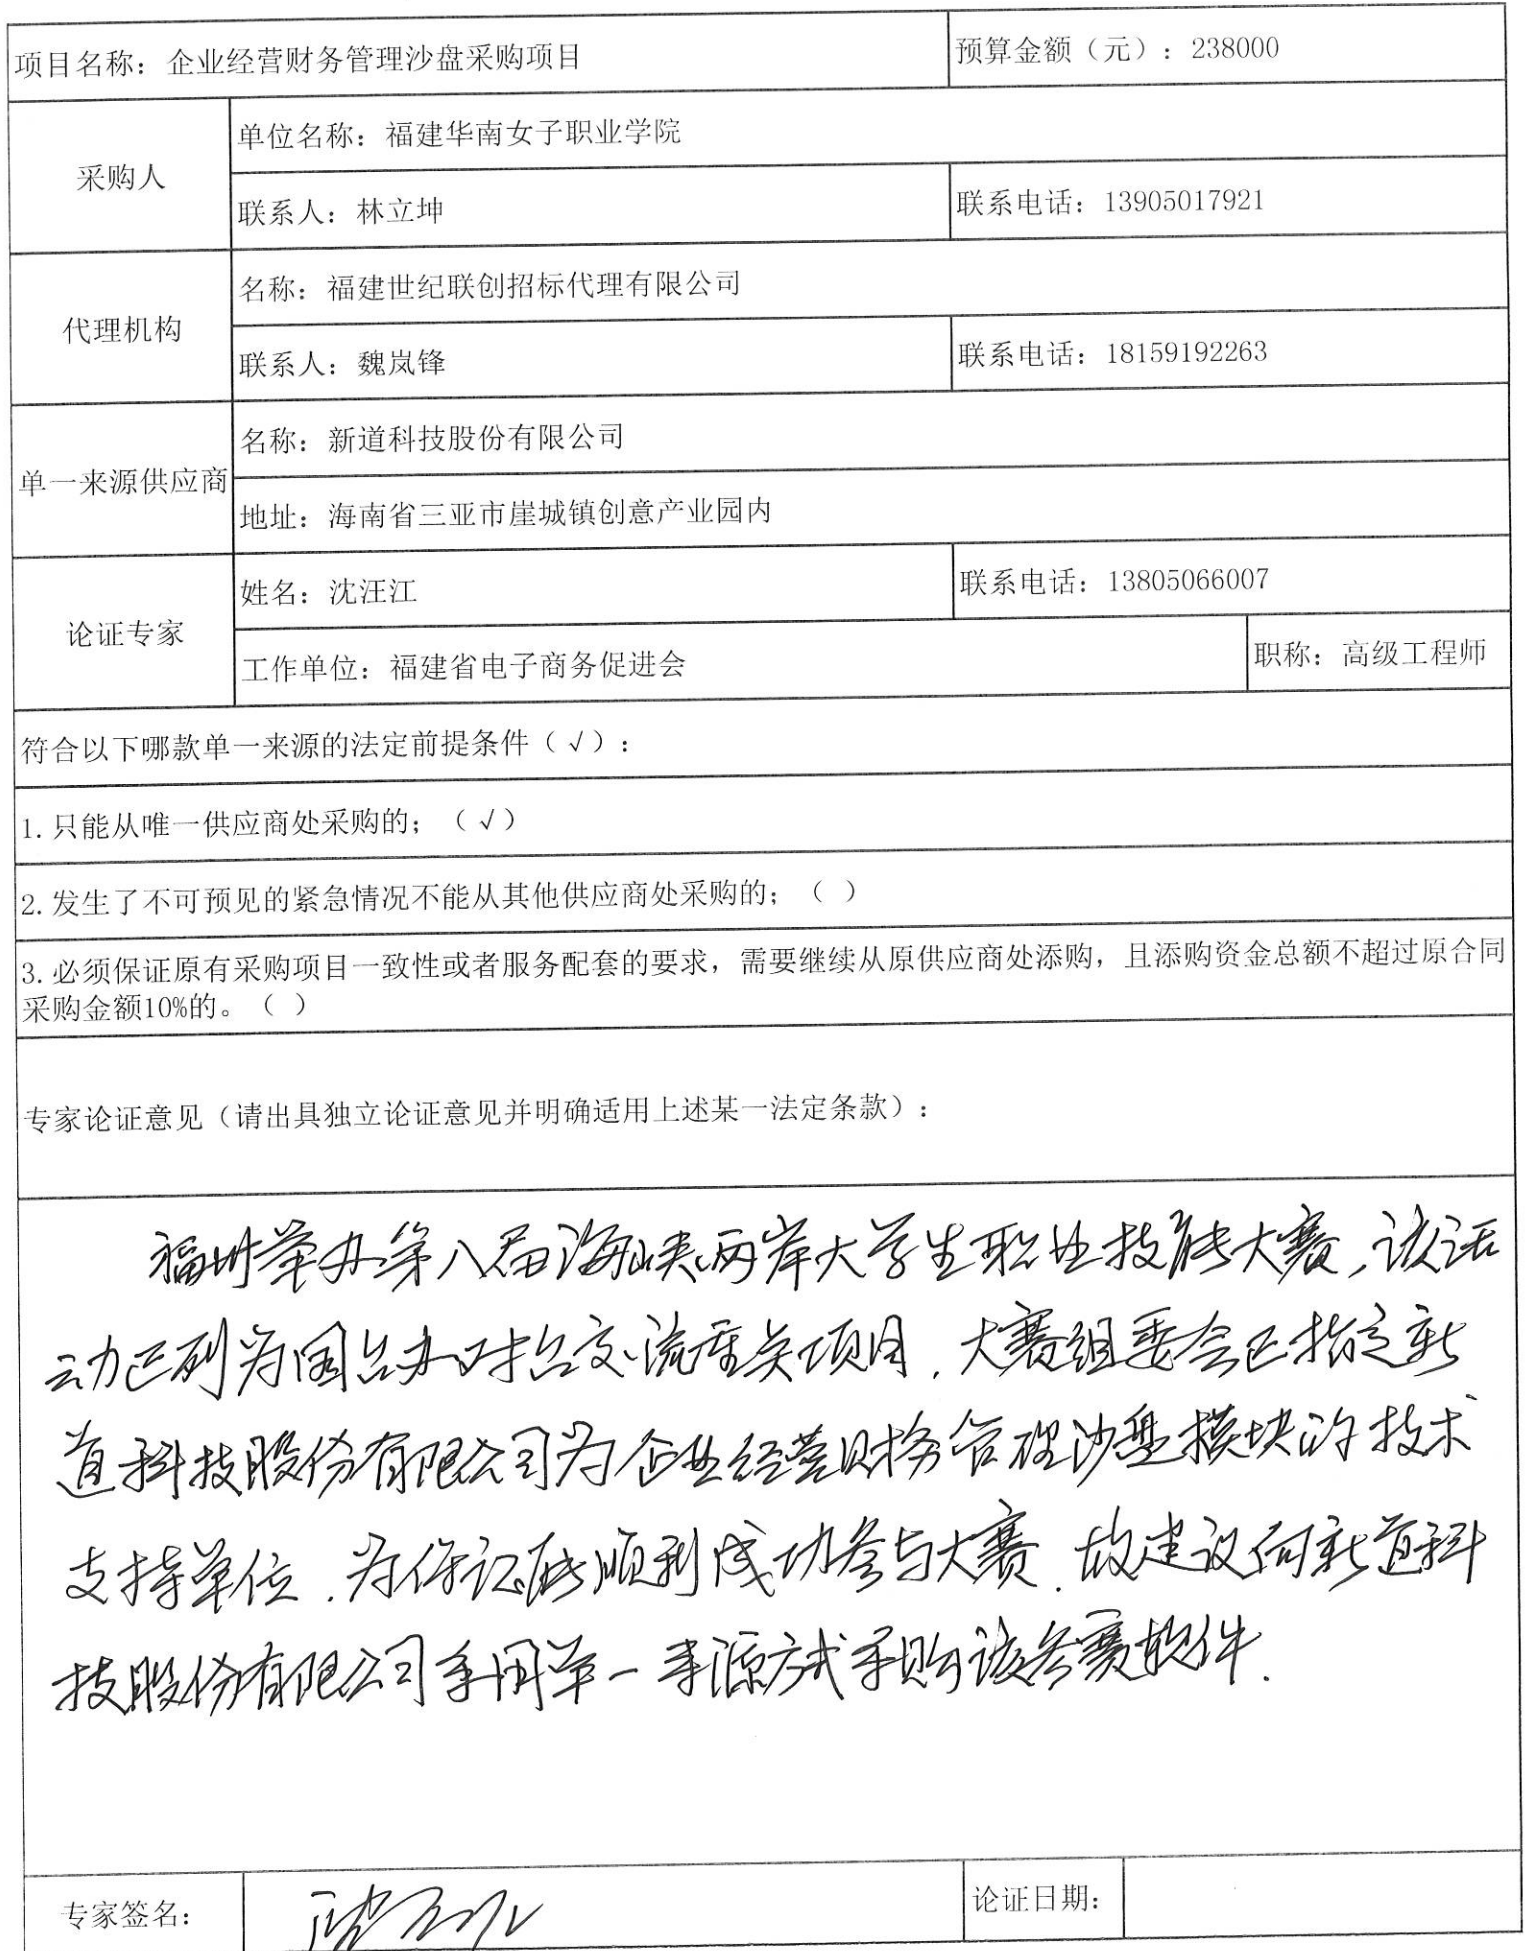 项目名称：企业经营财务管理沙盘采购项目
预算金额（元）：238000
采购人
单位名称：福建华南女子职业学院
联系人：林立坤
联系电话：13905017921
代理机构
名称：福建世纪联创招标代理有限公司
联系人：魏岚锋
联系电话：18159192263
单一来源供应商
名称：新道科技股份有限公司
地址：海南省三亚市崖城镇创意产业园内
论证专家
姓名：沈汪江
联系电话：13805066007
工作单位：福建省电子商务促进会
职称：高级工程师
符合以下哪款单一来源的法定前提条件（√）：
1.只能从唯一供应商处采购的；（√）
2.发生了不可预见的紧急情况不能从其他供应商处采购的；（ ）
3.必须保证原有采购项目一致性或者服务配套的要求，需要继续从原供应商处添购，且添购资金总额不超过原合同
采购金额10%的。（ ）
专家论证意见（请出具独立论证意见并明确适用上述某一法定条款）：
福州举办第八届海峡两岸大学生职业技能大赛，该活
动已列为国台办对台交流重点项目，大赛组委会已指定新
道科技股份有限公司为企业经营财务管理沙盘模块的技术
支持单位，为保证能顺利成功参与大赛，故建议向新道科
技股份有限公司采用单一来源方式采购该参赛软件.
专家签名：
论证日期：